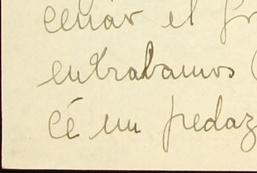 cenar el fr
entrabamos (
cé un pedaz